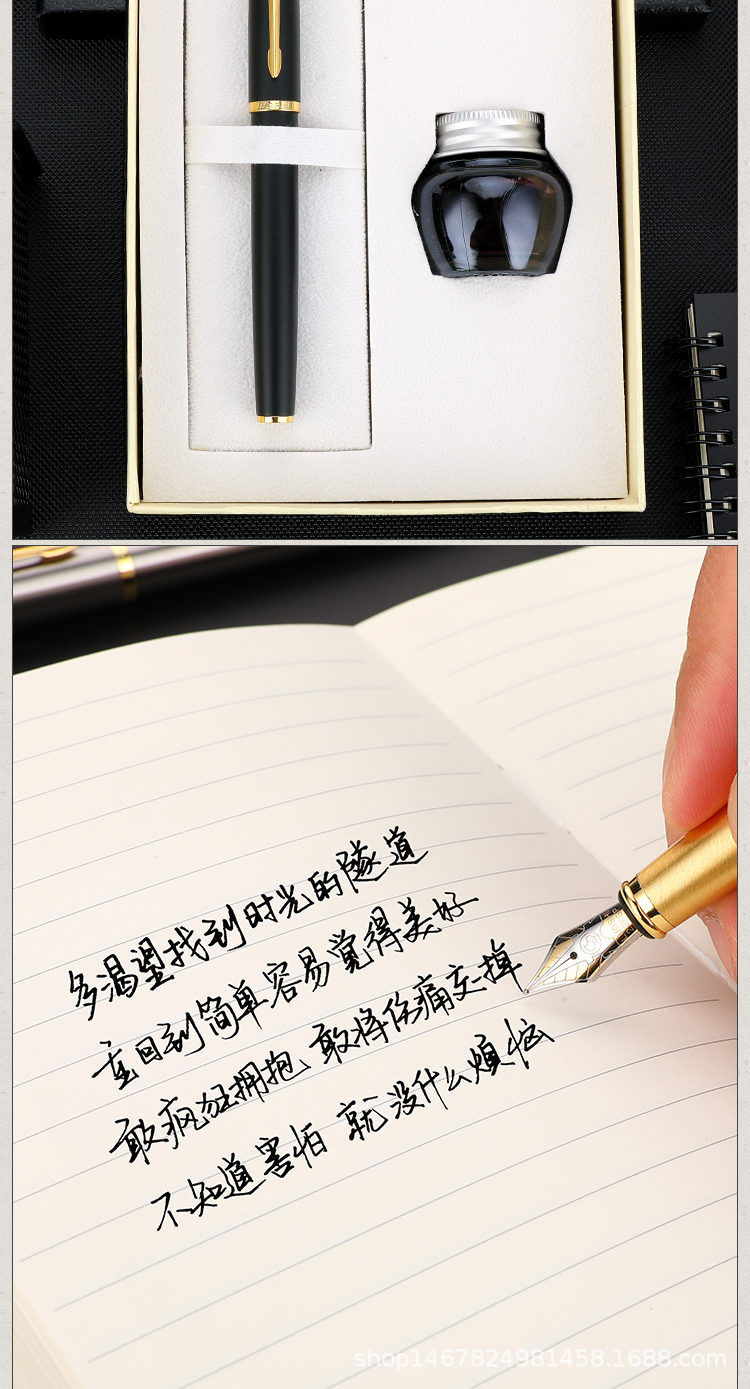 多渴望找到时光的隧道
重回到简单容易觉得美好
敢疯狂拥抱 敢将伤痛交掉
不知道害怕 就没什么烦恼
shop1467824981458.1688.com